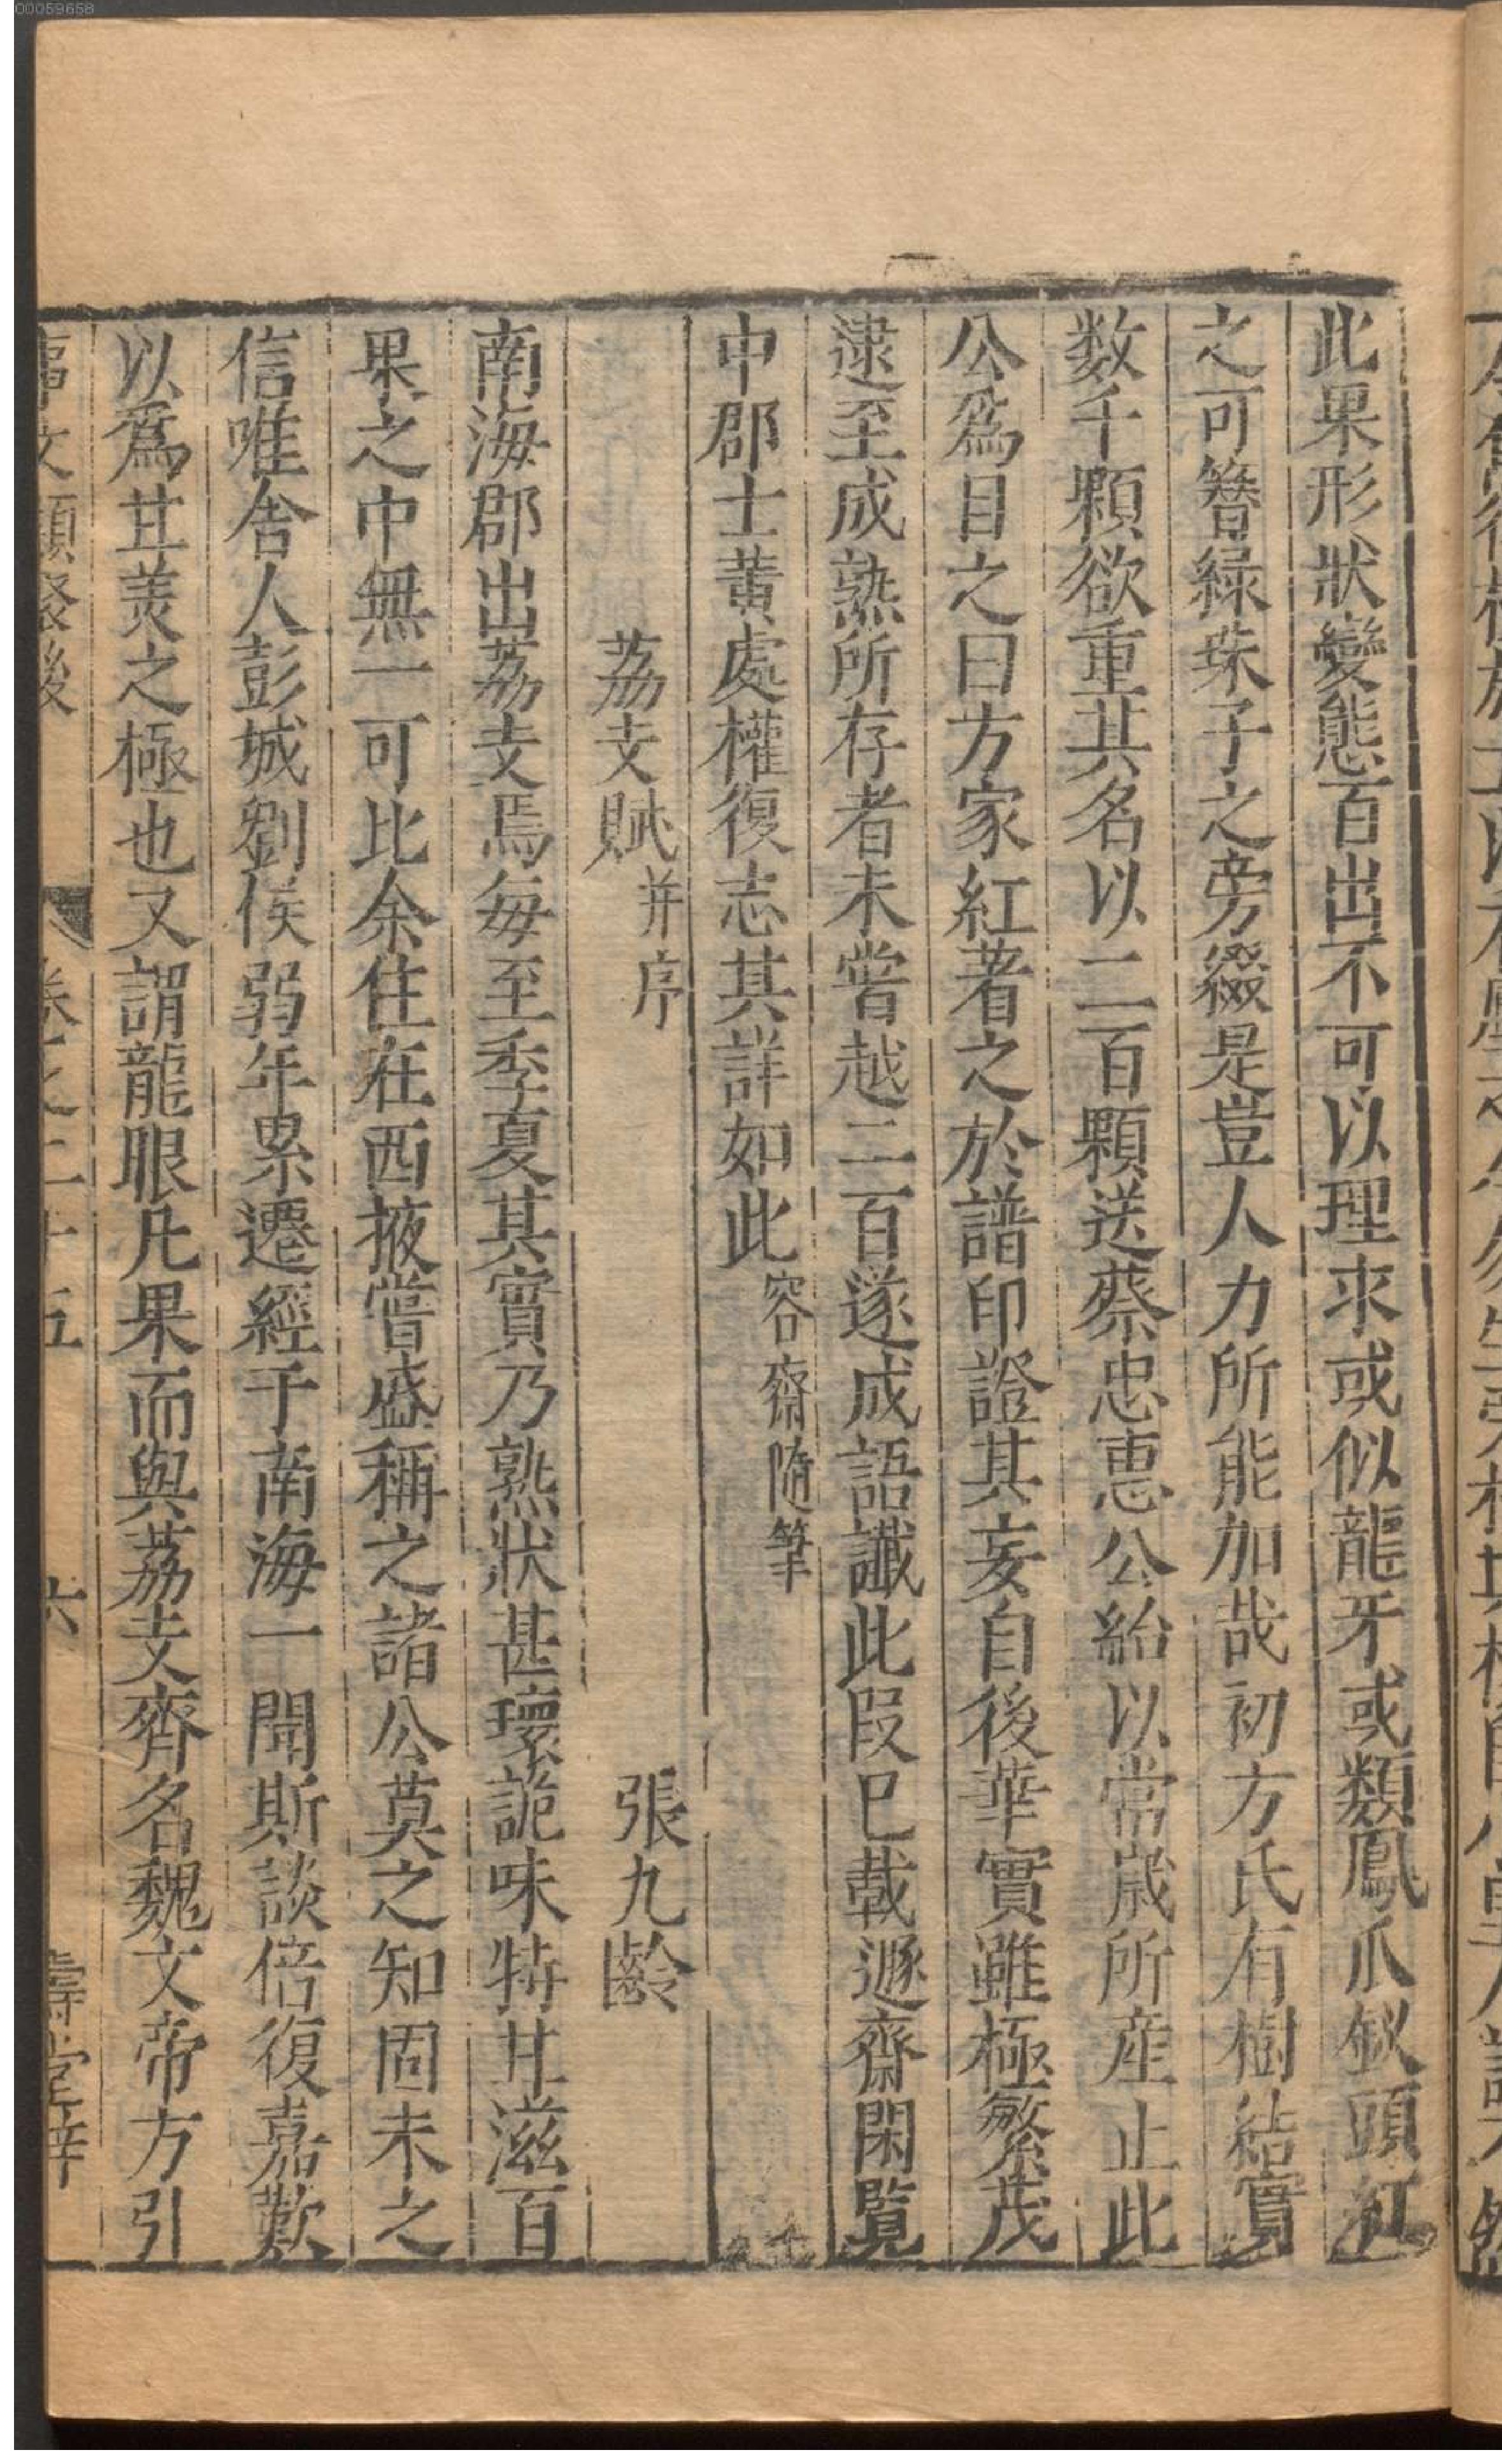 00059658
此果形狀變態百出不可以理求或似龍牙或類鳳爪釵頭紅
之可簪緑珠子之旁綴是豈人力所能加哉初方氏有樹結實
数千顆欲重其名以二百顆送蔡忠惠公紿以常歲所産止此
公爲目之曰方家紅著之於譜印證其妄自後華實雖極繁茂
逮至成熟所存者未嘗越二百遂成語讖此段已載遯齋閑覧
中郡士黄處權復志其詳如此容齋随筆
荔支賦并序 張九齡
南海郡出荔支焉每至季夏其實乃熟狀甚瓌詭味特甘滋百
果之中無一可比余往在西掖嘗盛稱之諸公莫之知固未之
信唯舎人彭城劉侯弱年累遷經于南海一聞斯談倍復嘉歎
以爲甘美之極也又謂龍眼凡果而與荔支齊名魏文帝方引
事文類聚後 卷之二十五 六